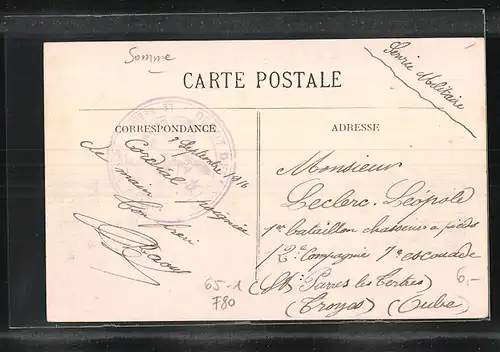 Somme
Service Militaire
CARTE POSTALE
CORRESPONDANCE
ADRESSE
2 Septembre 1916
Cordial poignée
de main
Ton frei
Monsieur
Leclerc Léopold
1er bataillon chasseurs à pieds
12e Compagnie 7e escouade
(St Parres les Tertres)
(Troyes) (Aube)
65-1
780
6,-